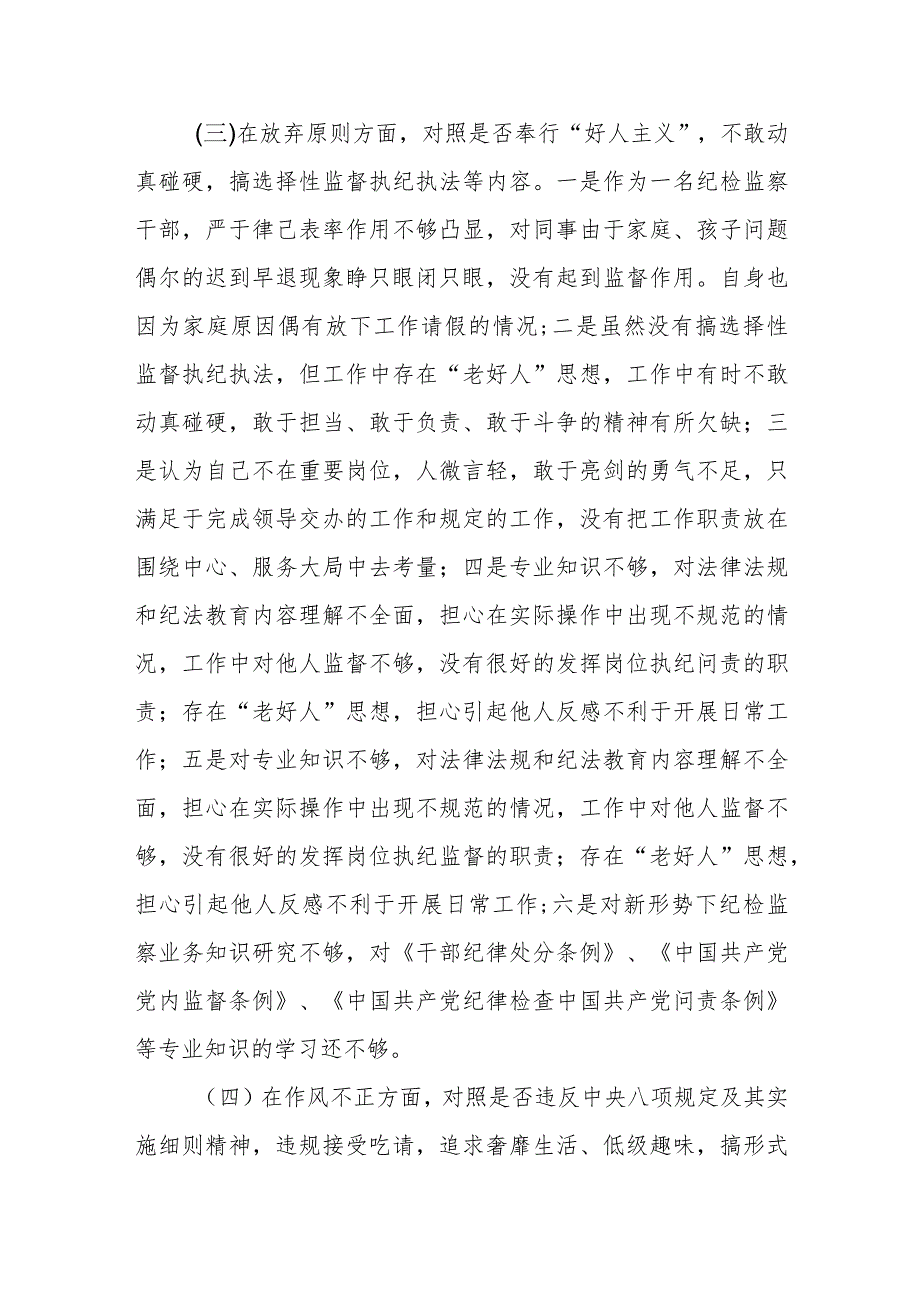 (三)在放弃原则方面，对照是否奉行“好人主义”，不敢动
真碰硬，搞选择性监督执纪执法等内容。一是作为一名纪检监察
干部，严于律己表率作用不够凸显，对同事由于家庭、孩子问题
偶尔的迟到早退现象睁只眼闭只眼，没有起到监督作用。自身也
因为家庭原因偶有放下工作请假的情况;二是虽然没有搞选择性
监督执纪执法，但工作中存在“老好人”思想，工作中有时不敢
动真碰硬，敢于担当、敢于负责、敢于斗争的精神有所欠缺；三
是认为自己不在重要岗位，人微言轻，敢于亮剑的勇气不足，只
满足于完成领导交办的工作和规定的工作，没有把工作职责放在
围绕中心、服务大局中去考量；四是专业知识不够，对法律法规
和纪法教育内容理解不全面，担心在实际操作中出现不规范的情
况，工作中对他人监督不够，没有很好的发挥岗位执纪问责的职
责；存在“老好人”思想，担心引起他人反感不利于开展日常工
作；五是对专业知识不够，对法律法规和纪法教育内容理解不全
面，担心在实际操作中出现不规范的情况，工作中对他人监督不
够，没有很好的发挥岗位执纪监督的职责；存在“老好人”思想，
担心引起他人反感不利于开展日常工作;六是对新形势下纪检监
察业务知识研究不够，对《干部纪律处分条例》、《中国共产党
党内监督条例》、《中国共产党纪律检查中国共产党问责条例》
等专业知识的学习还不够。
（四）在作风不正方面，对照是否违反中央八项规定及其实
施细则精神，违规接受吃请，追求奢靡生活、低级趣味，搞形式